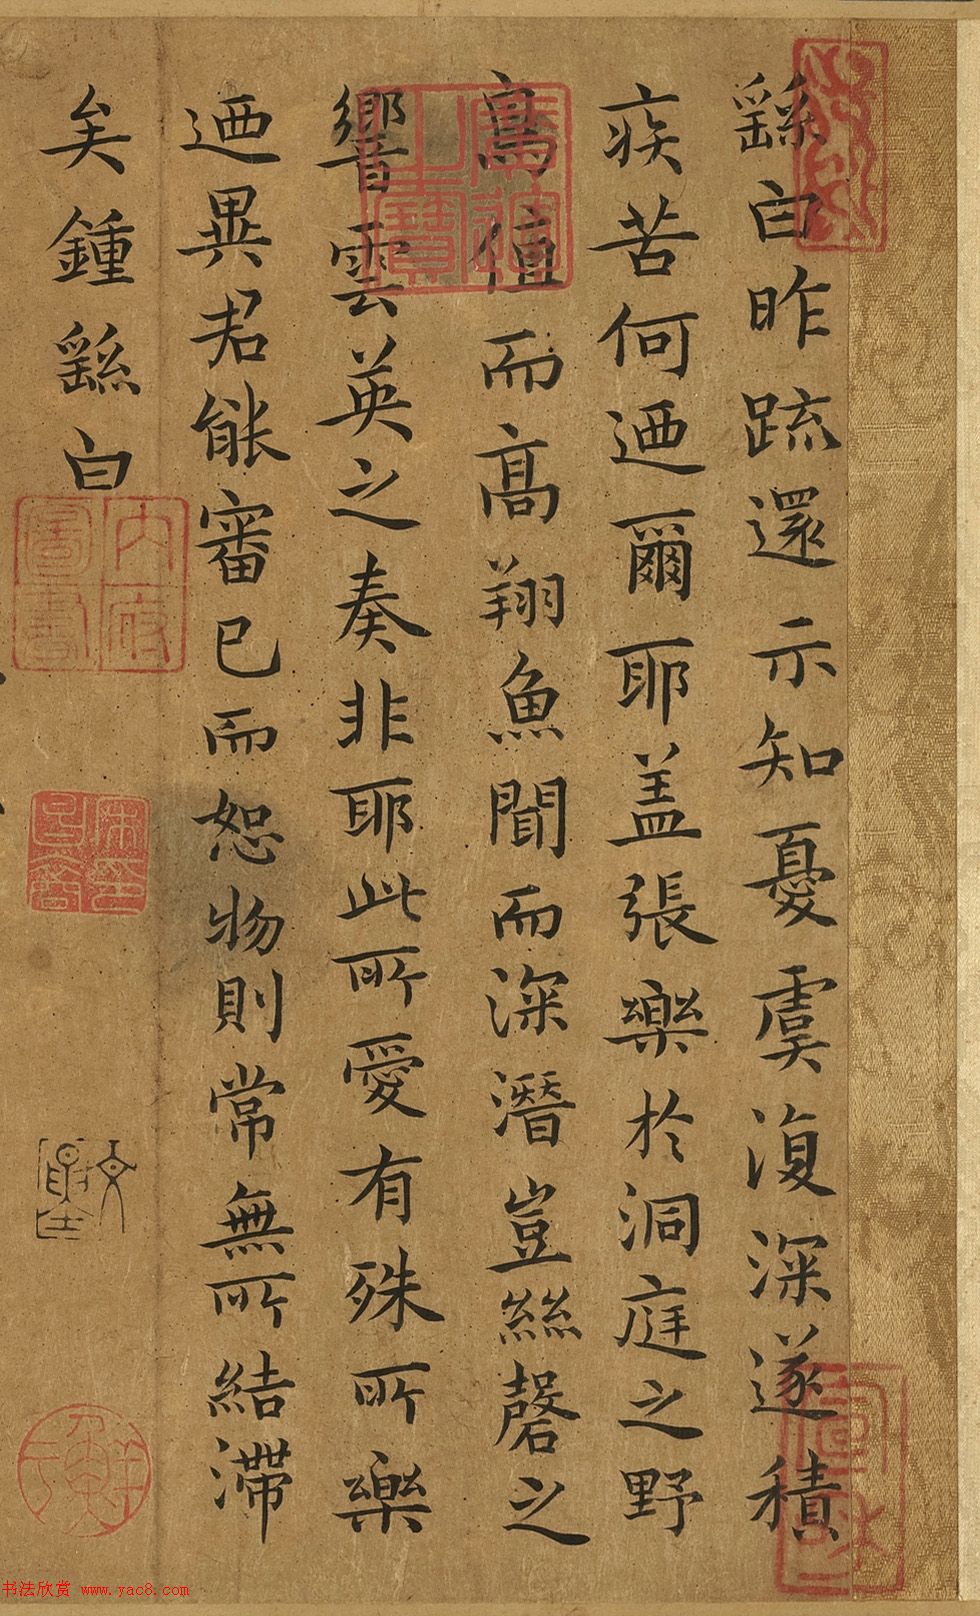 繇白昨疏還示知憂虞復深遂積
疾苦何迺爾耶盖張樂於洞庭之野
鳥值而高翔魚聞而深潛豈絲磬之
響雲英之奏非耶此所愛有殊所樂
迺異君能審己而恕物則常無所結滯
矣鍾繇白
內府圖書
書法欣赏 www.yac8.com